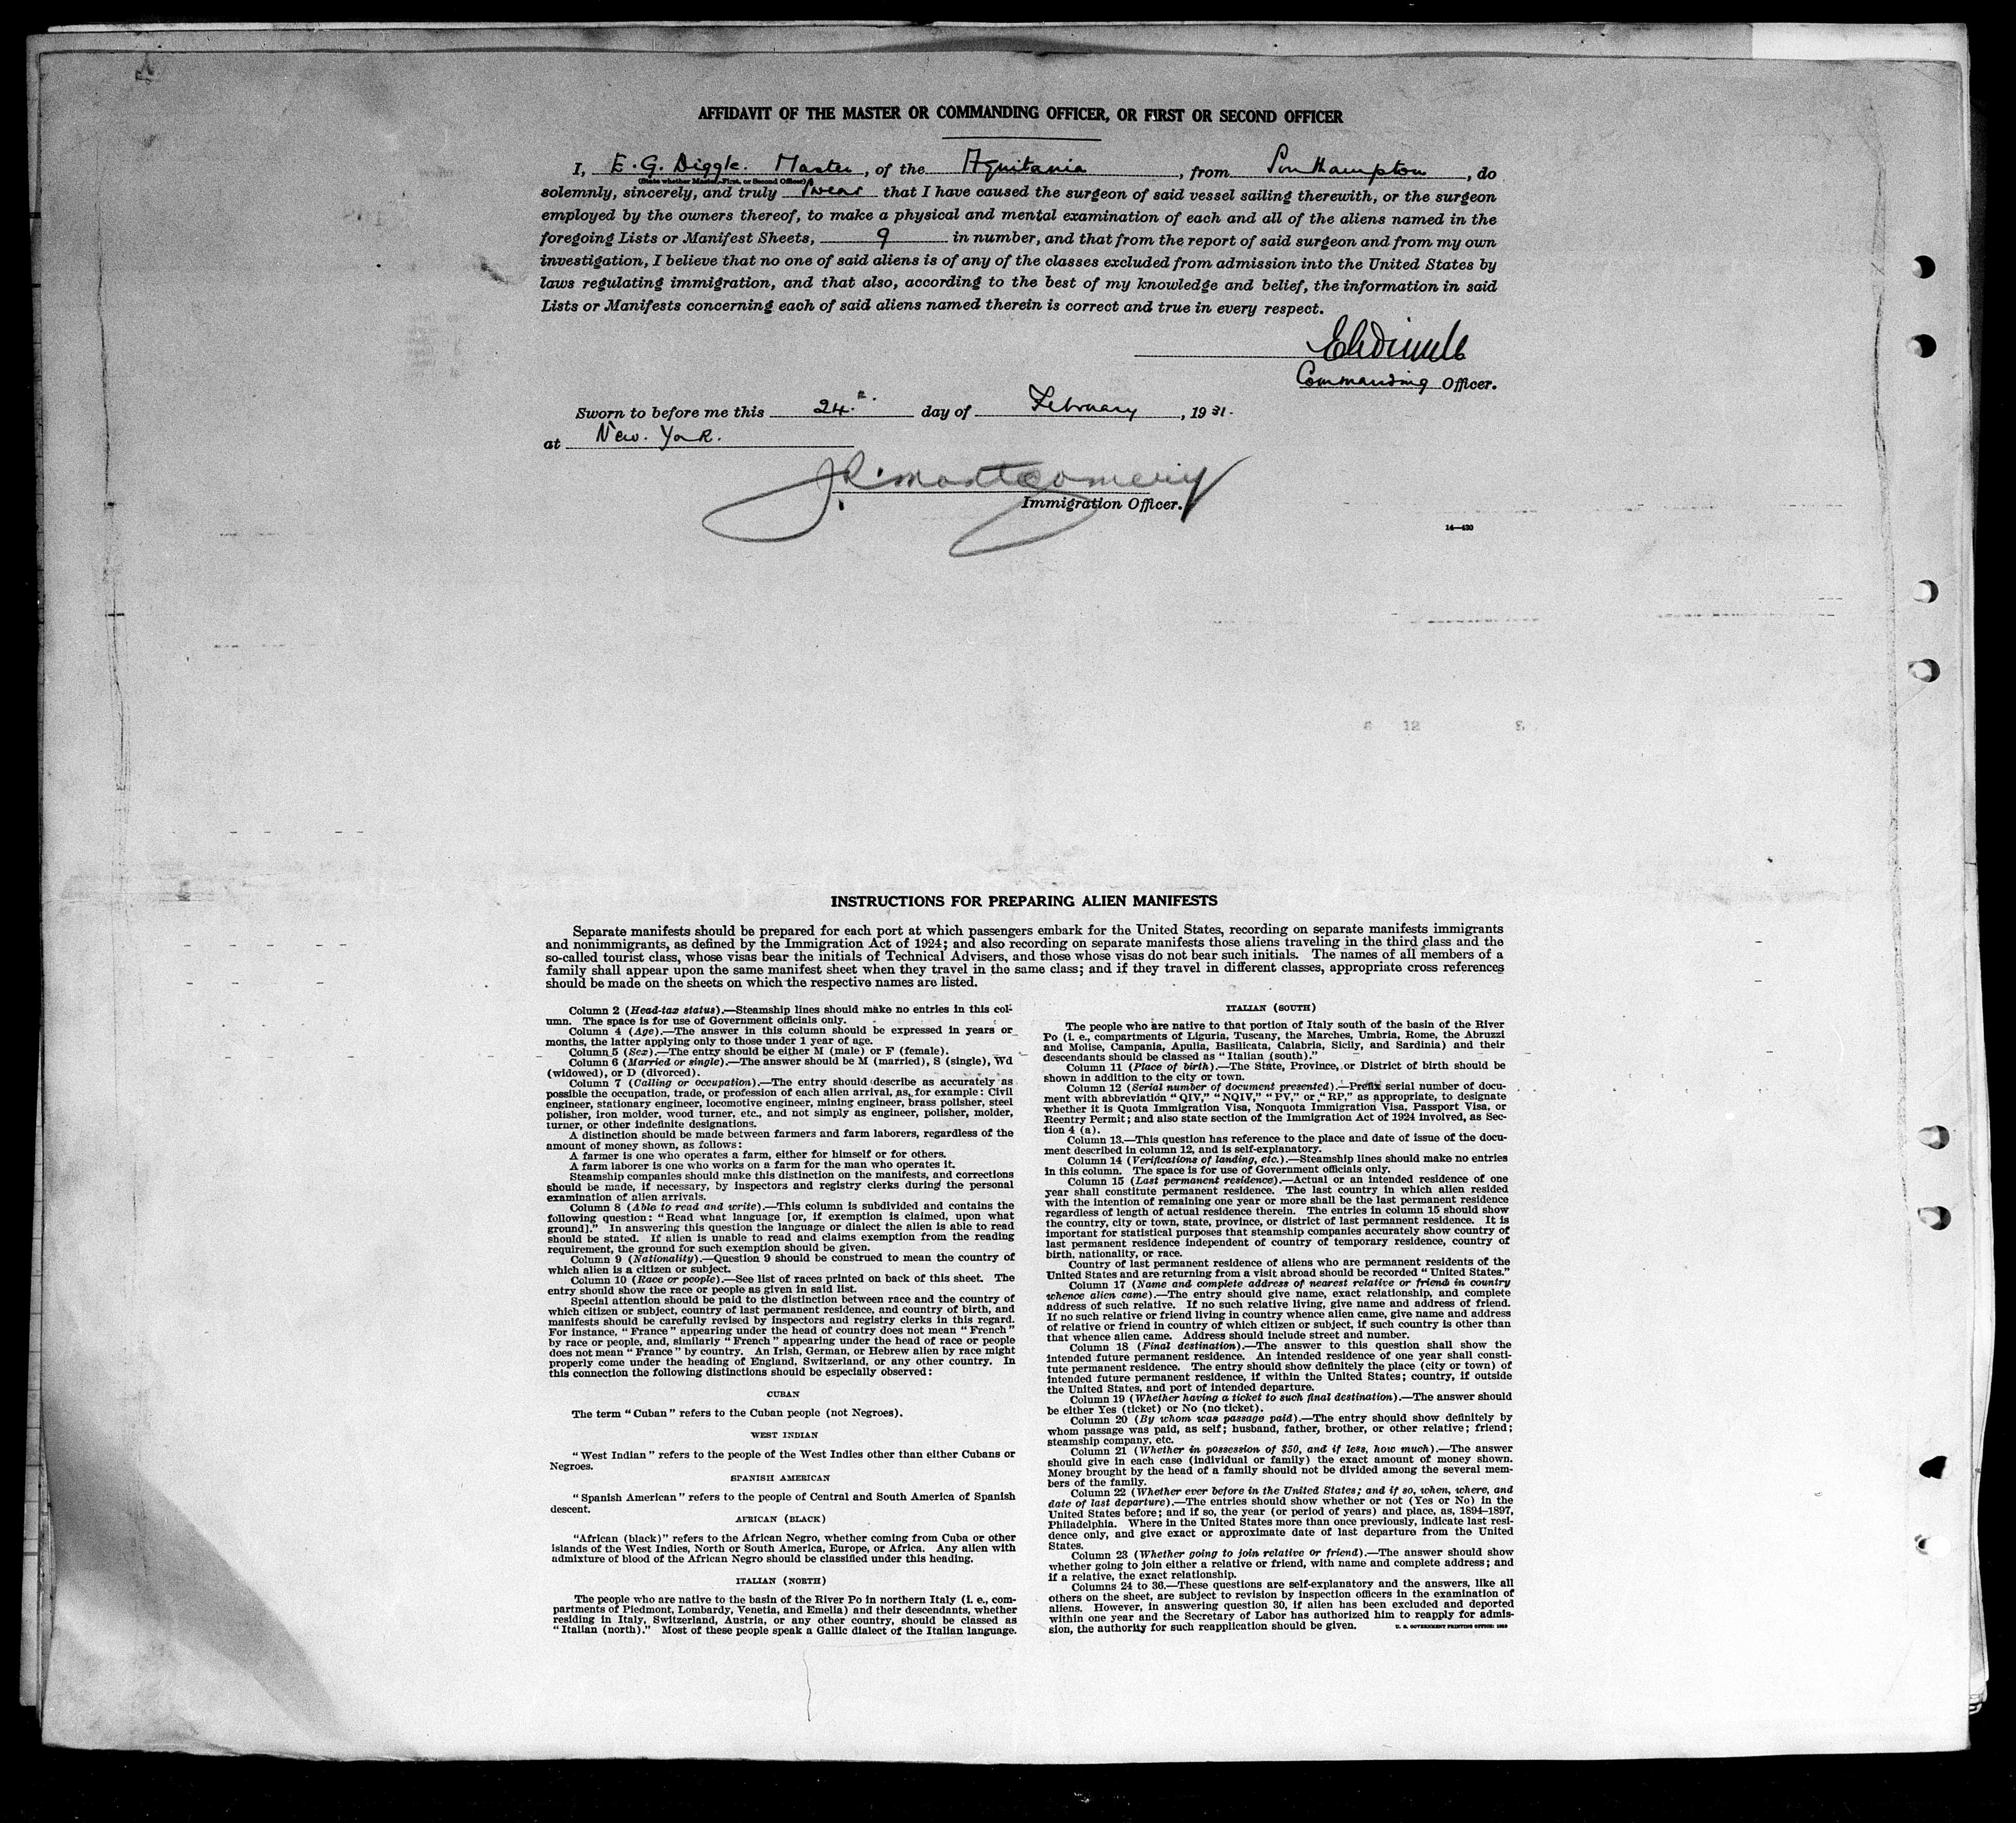 AFFIDAVIT OF THE MASTER OR COMMANDING OFFICER, OR FIRST OR SECOND OFFICER
I, E. G. Diggle. Master, of the Aquitania, from Southampton, do
(State whether Master, First, or Second Officer)
solemnly, sincerely, and truly swear that I have caused the surgeon of said vessel sailing therewith, or the surgeon
employed by the owners thereof, to make a physical and mental examination of each and all of the aliens named in the
foregoing Lists or Manifest Sheets, 9 in number, and that from the report of said surgeon and from my own
investigation, I believe that no one of said aliens is of any of the classes excluded from admission into the United States by
laws regulating immigration, and that also, according to the best of my knowledge and belief, the information in said
Lists or Manifests concerning each of said aliens named therein is correct and true in every respect.
Commanding Officer.
Sworn to before me this 24th. day of February, 1931.
at New. York.
J. R. Montgomery
Immigration Officer.
14—430
12
INSTRUCTIONS FOR PREPARING ALIEN MANIFESTS
Separate manifests should be prepared for each port at which passengers embark for the United States, recording on separate manifests immigrants
and nonimmigrants, as defined by the Immigration Act of 1924; and also recording on separate manifests those aliens traveling in the third class and the
so-called tourist class, whose visas bear the initials of Technical Advisers, and those whose visas do not bear such initials. The names of all members of a
family shall appear upon the same manifest sheet when they travel in the same class; and if they travel in different classes, appropriate cross references
should be made on the sheets on which the respective names are listed.
Column 2 (Head-tax status).—Steamship lines should make no entries in this col-
umn. The space is for use of Government officials only.
Column 4 (Age).—The answer in this column should be expressed in years or
months, the latter applying only to those under 1 year of age.
Column 5 (Sex).—The entry should be either M (male) or F (female).
Column 6 (Married or single).—The answer should be M (married), S (single), Wd
(widowed), or D (divorced).
Column 7 (Calling or occupation).—The entry should describe as accurately as
possible the occupation, trade, or profession of each alien arrival, as, for example: Civil
engineer, stationary engineer, locomotive engineer, mining engineer, brass polisher, steel
polisher, iron molder, wood turner, etc., and not simply as engineer, polisher, molder,
turner, or other indefinite designations.
A distinction should be made between farmers and farm laborers, regardless of the
amount of money shown, as follows:
A farmer is one who operates a farm, either for himself or for others.
A farm laborer is one who works on a farm for the man who operates it.
Steamship companies should make this distinction on the manifests, and corrections
should be made, if necessary, by inspectors and registry clerks during the personal
examination of alien arrivals.
Column 8 (Able to read and write).—This column is subdivided and contains the
following question: "Read what language [or, if exemption is claimed, upon what
ground]." In answering this question the language or dialect the alien is able to read
should be stated. If alien is unable to read and claims exemption from the reading
requirement, the ground for such exemption should be given.
Column 9 (Nationality).—Question 9 should be construed to mean the country of
which alien is a citizen or subject.
Column 10 (Race or people).—See list of races printed on back of this sheet. The
entry should show the race or people as given in said list.
Special attention should be paid to the distinction between race and the country of
which citizen or subject, country of last permanent residence, and country of birth, and
manifests should be carefully revised by inspectors and registry clerks in this regard.
For instance, "France" appearing under the head of country does not mean "French"
by race or people, and, similarly "French" appearing under the head of race or people
does not mean "France" by country. An Irish, German, or Hebrew alien by race might
properly come under the heading of England, Switzerland, or any other country. In
this connection the following distinctions should be especially observed:
CUBAN
The term "Cuban" refers to the Cuban people (not Negroes).
WEST INDIAN
"West Indian" refers to the people of the West Indies other than either Cubans or
Negroes.
SPANISH AMERICAN
"Spanish American" refers to the people of Central and South America of Spanish
descent.
AFRICAN (BLACK)
"African (black)" refers to the African Negro, whether coming from Cuba or other
islands of the West Indies, North or South America, Europe, or Africa. Any alien with
admixture of blood of the African Negro should be classified under this heading.
ITALIAN (NORTH)
The people who are native to the basin of the River Po in northern Italy (i. e., com-
partments of Piedmont, Lombardy, Venetia, and Emelia) and their descendants, whether
residing in Italy, Switzerland, Austria, or any other country, should be classed as
"Italian (north)." Most of these people speak a Gallic dialect of the Italian language.
ITALIAN (SOUTH)
The people who are native to that portion of Italy south of the basin of the River
Po (i. e., compartments of Liguria, Tuscany, the Marches, Umbria, Rome, the Abruzzi
and Molise, Campania, Apulia, Basilicata, Calabria, Sicily, and Sardinia) and their
descendants should be classed as "Italian (south)."
Column 11 (Place of birth).—The State, Province, or District of birth should be
shown in addition to the city or town.
Column 12 (Serial number of document presented).—Prefix serial number of docu-
ment with abbreviation "QIV," "NQIV," "PV," or "RP," as appropriate, to designate
whether it is Quota Immigration Visa, Nonquota Immigration Visa, Passport Visa, or
Reentry Permit; and also state section of the Immigration Act of 1924 involved, as Sec-
tion 4 (a).
Column 13.—This question has reference to the place and date of issue of the docu-
ment described in column 12, and is self-explanatory.
Column 14 (Verifications of landing, etc.).—Steamship lines should make no entries
in this column. The space is for use of Government officials only.
Column 15 (Last permanent residence).—Actual or an intended residence of one
year shall constitute permanent residence. The last country in which alien resided
with the intention of remaining one year or more shall be the last permanent residence
regardless of length of actual residence therein. The entries in column 15 should show
the country, city or town, state, province, or district of last permanent residence. It is
important for statistical purposes that steamship companies accurately show country of
last permanent residence independent of country of temporary residence, country of
birth, nationality, or race.
Country of last permanent residence of aliens who are permanent residents of the
United States and are returning from a visit abroad should be recorded "United States."
Column 17 (Name and complete address of nearest relative or friend in country
whence alien came).—The entry should give name, exact relationship, and complete
address of such relative. If no such relative living, give name and address of friend.
If no such relative or friend living in country whence alien came, give name and address
of relative or friend in country of which citizen or subject, if such country is other than
that whence alien came. Address should include street and number.
Column 18 (Final destination).—The answer to this question shall show the
intended future permanent residence. An intended residence of one year shall consti-
tute permanent residence. The entry should show definitely the place (city or town) of
intended future permanent residence, if within the United States; country, if outside
the United States, and port of intended departure.
Column 19 (Whether having a ticket to such final destination).—The answer should
be either Yes (ticket) or No (no ticket).
Column 20 (By whom was passage paid).—The entry should show definitely by
whom passage was paid, as self; husband, father, brother, or other relative; friend;
steamship company, etc.
Column 21 (Whether in possession of $50, and if less, how much).—The answer
should give in each case (individual or family) the exact amount of money shown.
Money brought by the head of a family should not be divided among the several mem-
bers of the family.
Column 22 (Whether ever before in the United States; and if so, when, where, and
date of last departure).—The entries should show whether or not (Yes or No) in the
United States before; and if so, the year (or period of years) and place, as, 1894-1897,
Philadelphia. Where in the United States more than once previously, indicate last resi-
dence only, and give exact or approximate date of last departure from the United
States.
Column 23 (Whether going to join relative or friend).—The answer should show
whether going to join either a relative or friend, with name and complete address; and
if a relative, the exact relationship.
Columns 24 to 36.—These questions are self-explanatory and the answers, like all
others on the sheet, are subject to revision by inspection officers in the examination of
aliens. However, in answering question 30, if alien has been excluded and deported
within one year and the Secretary of Labor has authorized him to reapply for admis-
sion, the authority for such reapplication should be given.
U. S. GOVERNMENT PRINTING OFFICE: